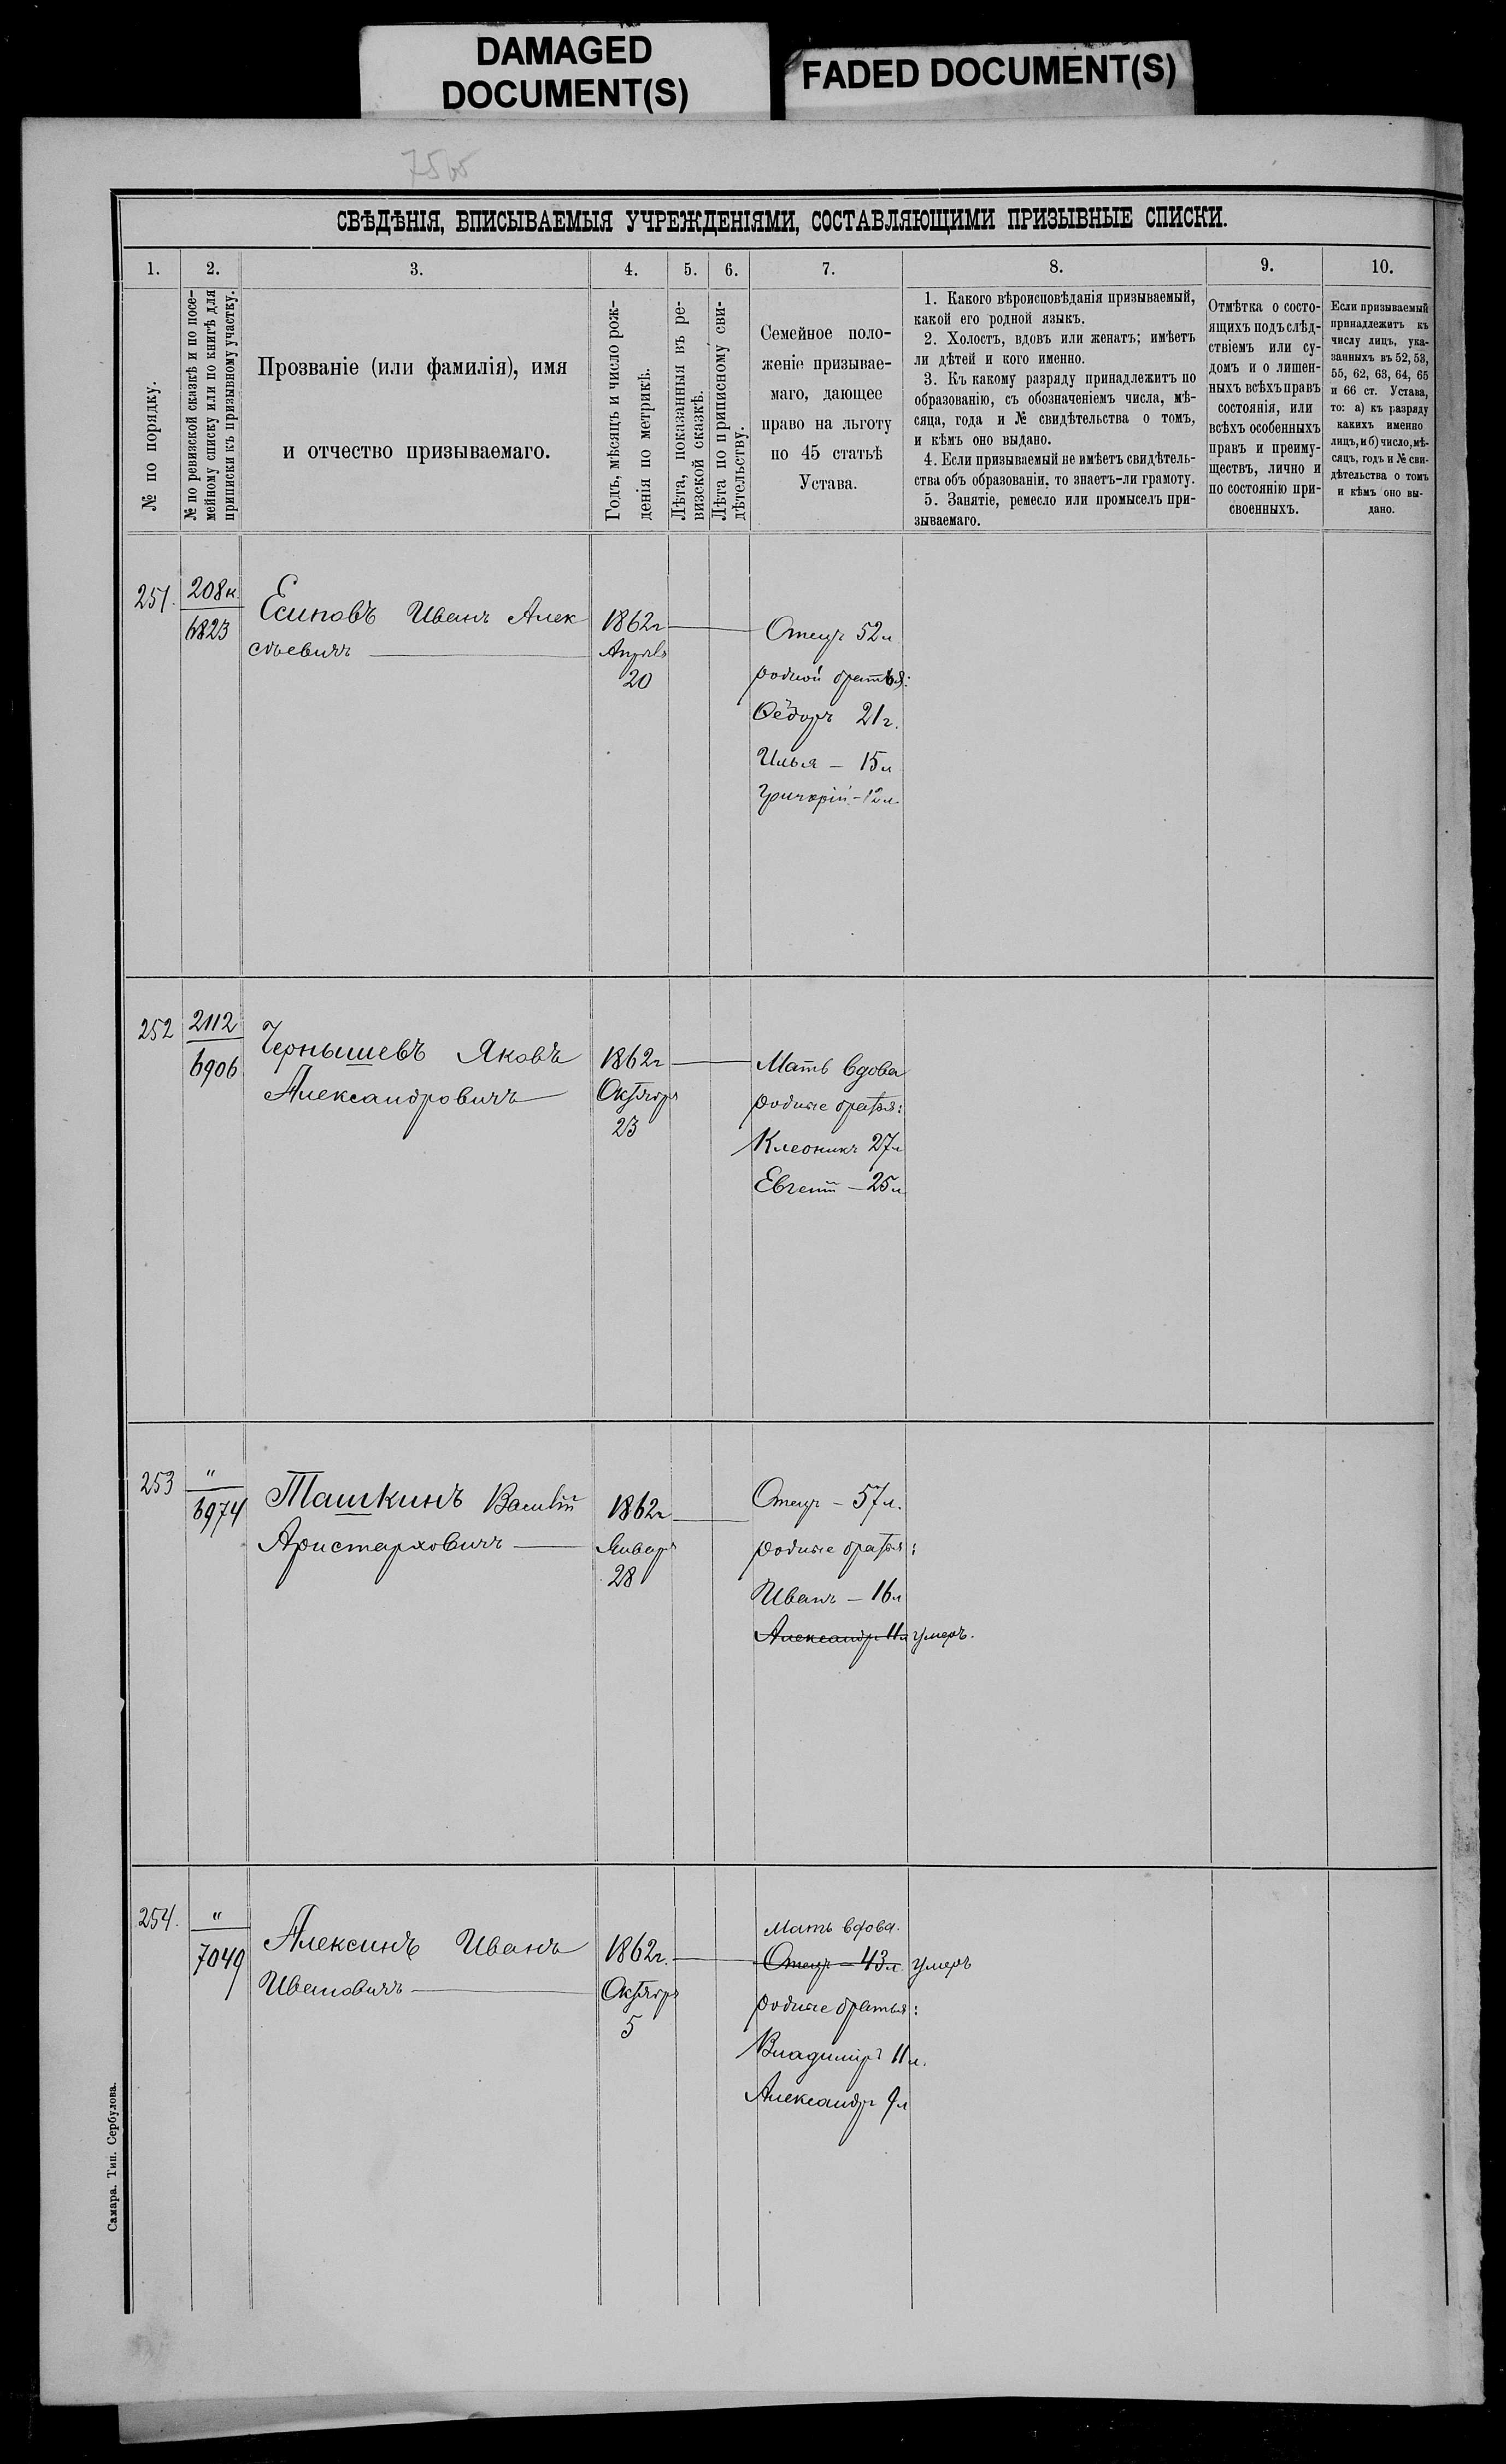 DAMAGED
DOCUMENT(S)
FADED DOCUMENT(S)
СВѢДѢНІЯ, ВПИСЫВАЕМЫЯ УЧРЕЖДЕНІЯМИ, СОСТАВЛЯЮЩИМИ ПРИЗЫВНЫЕ СПИСКИ.
1. 2. 3. 4. 5. 6. 7. 8. 9. 10.
№ по порядку.
№ по ревизской сказкѣ и по посе-
мейному списку или по книгѣ для
приписки къ призывному участку.
Прозваніе (или фамилія), имя
и отчество призываемаго.
Годъ, мѣсяцъ и число рож-
денія по метрикѣ.
Лѣта, показанныя въ ре-
визской сказкѣ.
Лѣта по приписному сви-
дѣтельству.
Семейное поло-
женіе призывае-
маго, дающее
право на льготу
по 45 статьѣ
Устава.
1. Какого вѣроисповѣданія призываемый,
какой его родной языкъ.
2. Холостъ, вдовъ или женатъ; имѣетъ
ли дѣтей и кого именно.
3. Къ какому разряду принадлежитъ по
образованію, съ обозначеніемъ числа, мѣ-
сяца, года и № свидѣтельства о томъ,
и кѣмъ оно выдано.
4. Если призываемый не имѣетъ свидѣтель-
ства объ образованіи, то знаетъ-ли грамоту.
5. Занятіе, ремесло или промыселъ при-
зываемаго.
Отмѣтка о состо-
ящихъ подъ слѣд-
ствіемъ или су-
домъ и о лишен-
ныхъ всѣхъ правъ
состоянія, или
всѣхъ особенныхъ
правъ и преиму-
ществъ, лично и
по состоянію при-
своенныхъ.
Если призываемый
принадлежитъ къ
числу лицъ, ука-
занныхъ въ 52, 53,
55, 62, 63, 64, 65
и 66 ст. Устава,
то: а) къ разряду
какихъ именно
лицъ, и б) число, мѣ-
сяцъ, годъ и № сви-
дѣтельства о томъ
и кѣмъ оно вы-
дано.
251.
208к.
6823
Есиповъ Иванъ Алек
сѣевичъ
1862г
Апрѣль
20
Отецъ 52л
родной братья:
Ѳёдоръ 21г.
Илья – 15л
Григорій – 12л.
252
2112
6906
Чернышевъ Яковъ
Александровичъ
1862г
Октября
23
Мать вдова
родные братья:
Клеоникъ 27л
Евгеній – 25л
253
"
6974
Ташкинъ Василій
Аристарховичъ
1862г
Января
28
Отецъ – 57л.
родные братья:
Иванъ – 16л
Александръ 11л умеръ.
254.
"
7049
Алексинъ Иванъ
Ивановичъ
1862г.
Октября
5
Мать вдова.
Отецъ – 43л. умеръ
родные братья:
Владиміръ 11л.
Александръ 9л
Самара. Тип. Сербулова.